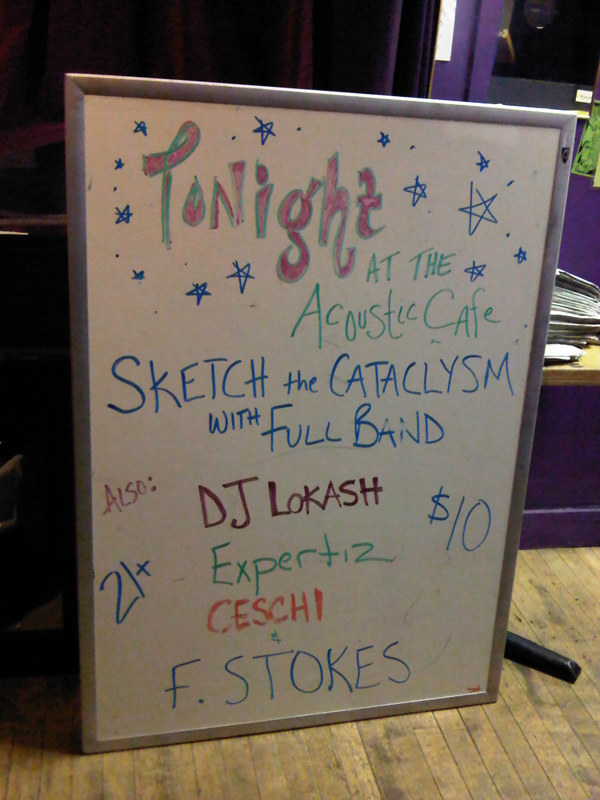 Tonight
AT THE
Acoustic Cafe
SKETCH the CATACLYSM
WITH FULL BAND
ALSO:
DJ LOKASH
$10
21+
Expertiz
CESCHI
&
F. STOKES